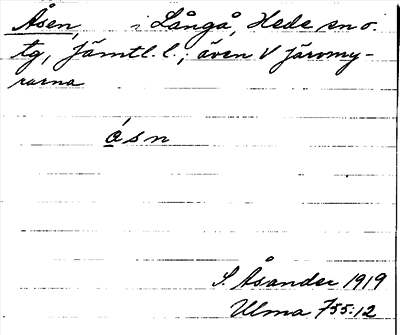 Åsen, i Långå, Hede sn o.
tg, Jämtl. l.; även V Järomy-
rarna
åsn
S. Åsander 1919
Ulma 755:12